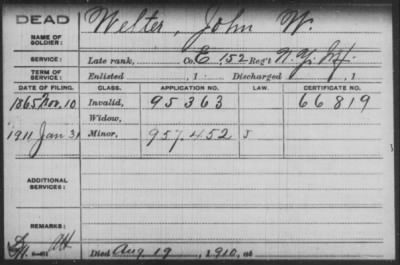 DEAD
Welter, John W.
NAME OF SOLDIER:
SERVICE: Late rank, Co. E 152 Reg't N.Y. Inf.
TERM OF SERVICE: Enlisted , 1 Discharged , 1
DATE OF FILING. CLASS. APPLICATION NO. LAW. CERTIFICATE NO.
1865 Nov. 10 Invalid, 95363 66819
Widow,
1911 Jan 31 Minor, 957.452
ADDITIONAL SERVICES:
REMARKS:
Died Aug 19, 1910, at